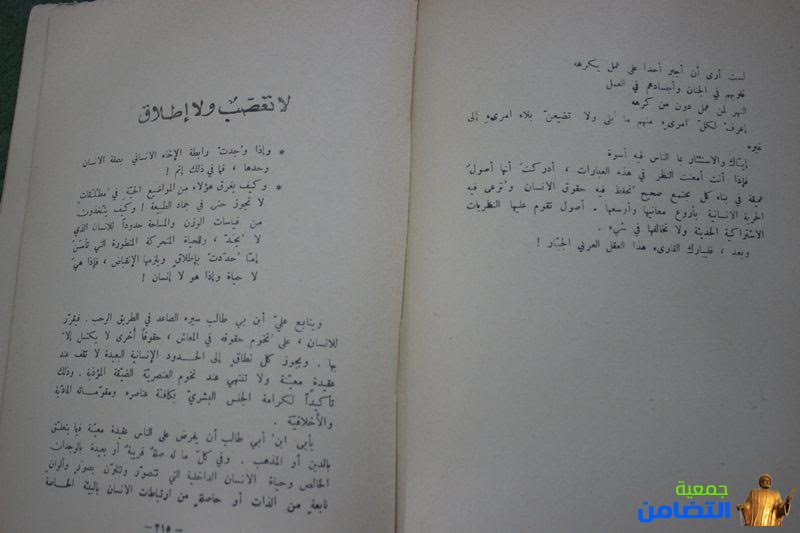 لست أرى أن أجبر أحدا على عمل يكرهه
قلوبهم في الجنان وأجسادهم في العمل
النهر لمن عمل دون من كرهه
إعرف لكلّ امرىءٍ منهم ما أبلى ولا تضيفنّ بلاء امرىءٍ إلى
غيره
إيّاك والاستئثار بما الناس فيه أسوة
فإذا أنت أمعنت النظر في هذه العبارات ، أدركتَ أنها أصولٌ
عميقة في بناء كل مجتمع صحيح تُحفظ فيه حقوق الانسان وتُرعى فيه
الحرية الانسانية بأروع معانيها وأوسعها . أصول تقوم عليها النظريات
الاشتراكية الحديثة ولا تخالفها في شيء .
وبعد ، فليبارك القارىء هذا العقل العربي الجبّار !
لا تعصّبٌ ولا إطلاق
* وإذا وُجدتْ رابطة الإخاء الانساني بصفة الانسان
وحدها ، فما في ذلك إثم !
* وكيف يغرق هؤلاء من المواضيع الحيّة في مُطلَقات
لا تجوز حتى في جماد الطبيعة ! وكيف يتّخذون
من قياسات الوزن والمساحة حدوداً للانسان الذي
لا يُحَدّ ، وللحياة المتحركة المتطورة التي تأسن
إمّا حُدّدتْ بإطلاقٍ ويلزمها الإنقباض ، فإذا هي
لا حياة وإذا هو لا إنسان !
ويتابع عليّ ابن بي طالب سيره الصاعد في الطريق الرحب . فيقرّر
للانسان ، على تخوم حقوقه في المعاش ، حقوقاً أخرى لا يكتمل إلاّ
بها . ويجوز كل نطاقٍ إلى الحدود الإنسانية البعيدة لا تقف عند
عقيدةٍ معيّنة ولا تنتهي عند تخوم العنصريّة الضيّقة المؤذية . وذلك
تأكيداً لكرامة الجنس البشريّ بكافّة عناصره ومقوّماته المادّية
والأخلاقيّة .
يأبى ابن أبي طالب أن يفرض على الناس عقيدة معيّنة فيما يتعلّق
بالدين أو المذهب . وفي كلّ ما له صلةٌ قريبةٌ أو بعيدة بالوجدان
الخالص وحياة الانسان الداخلية التي تتصوّر وتتلوّن بصُوَرٍ وألوانٍ
نابعةٍ من الذات أو حاصلةٍ من ارتباطات الانسان بالبيئة الخاصة
- ٢١٥ -
جمعية
التضامن